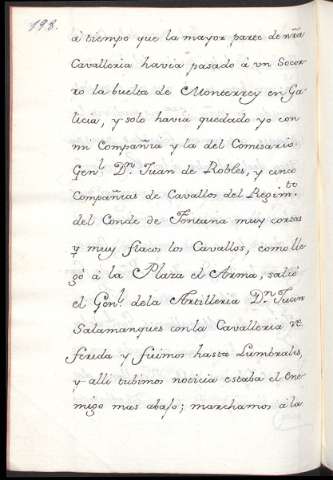 198.
à tiempo que la mayor parte de nr̃a
Cavalleria havia pasado à vn Socor
ro la buelta de Monterrey en Ga
licia, y solo havia quedado yo con
mi Compañia y la del Comisario
Gen.l D.n Juan de Robles, y cinco
Compañias de Cavallos del Regim.to
del Conde de Fontana muy cortas
y muy flacos los Cavallos, como lle
gó á la Plaza el Arma, salió
el Gen.l dela Artilleria D.n Juan
Salamanques con la Cavalleria re
ferida y fuimos hasta Lumbrales,
y alli tubimos noticia estaba el ene
migo mas abajo; marchamos á la